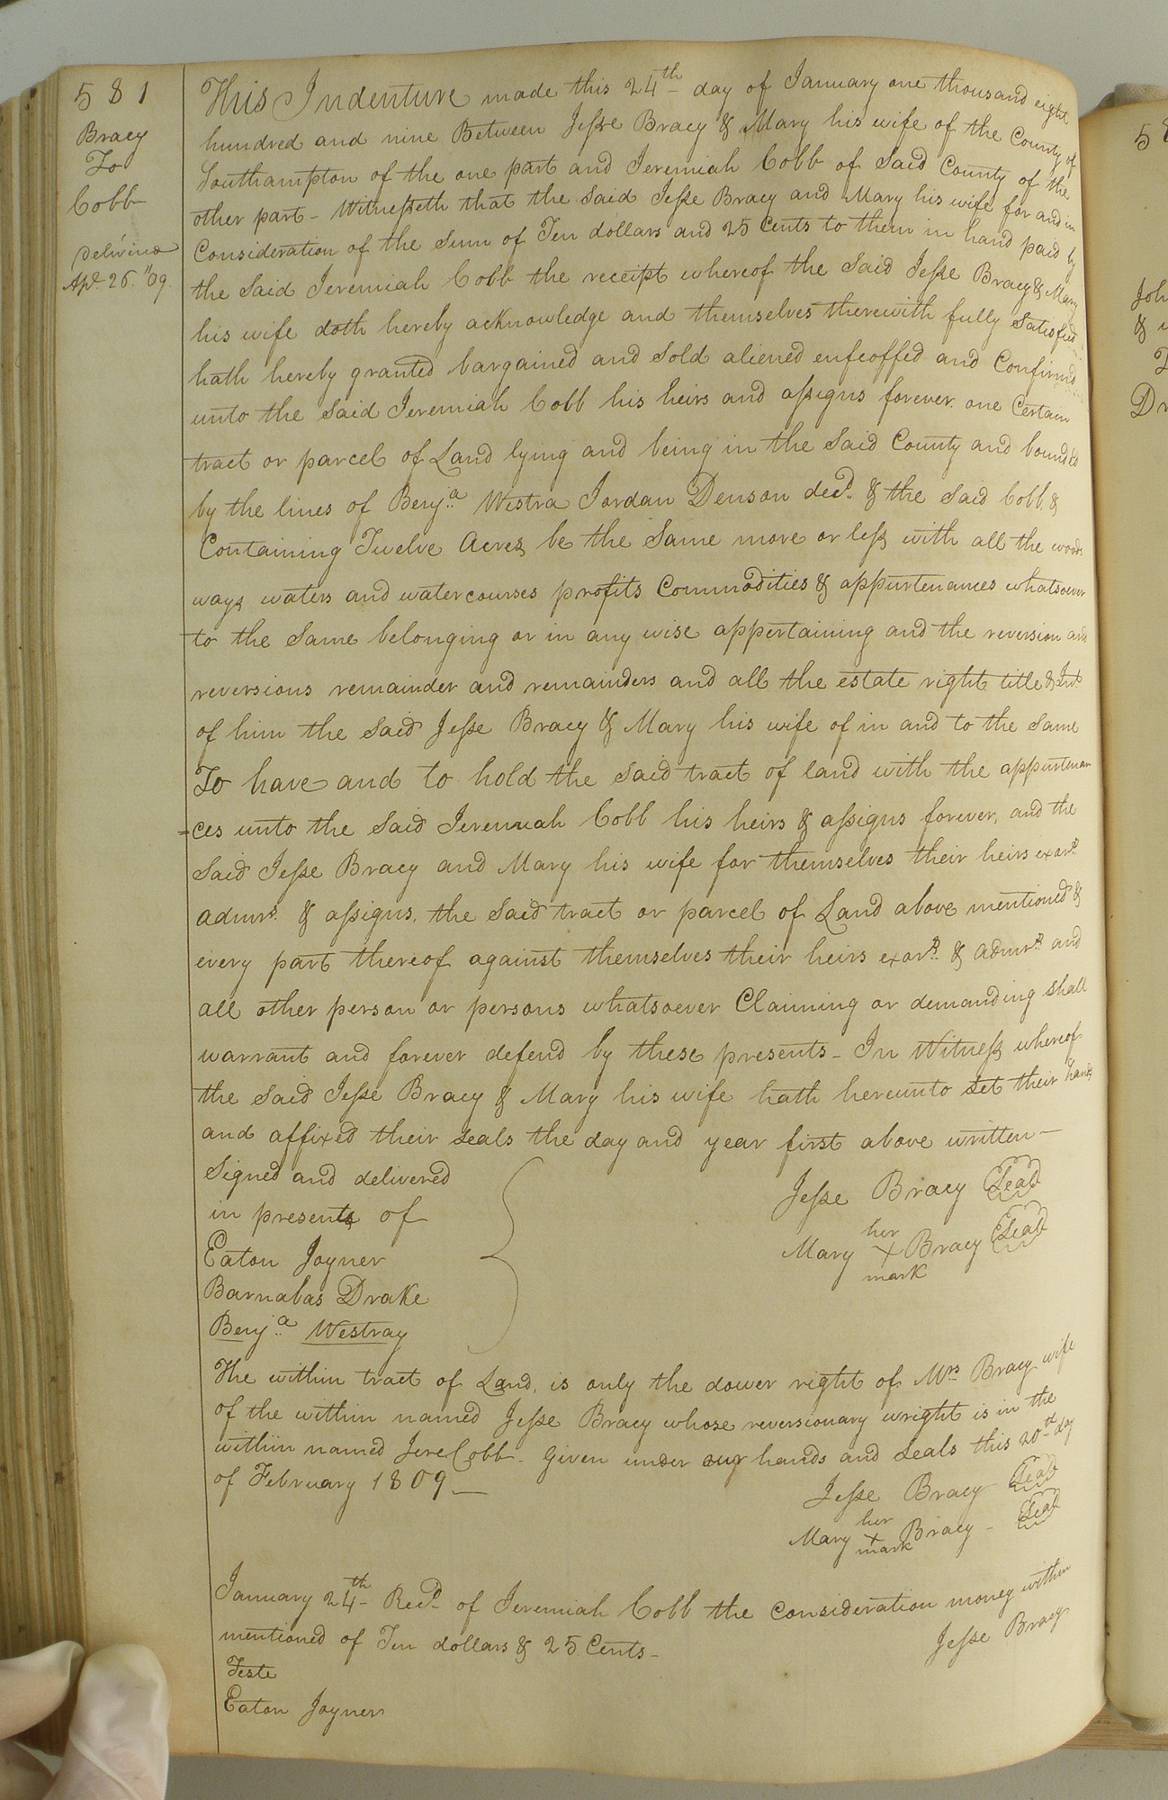 581
Bracy
To
Cobb
Delivered
Apl. 26. "09.
This Indenture made this 24th day of January one thousand eight
hundred and nine Between Jesse Bracy & Mary his wife of the County of
Southampton of the one part and Jeremiah Cobb of Said County of the
other part - Witnesseth that the Said Jesse Bracy and Mary his wife for and in
Consideration of the Sum of Ten dollars and 25 Cents to them in hand paid by
the Said Jeremiah Cobb the receipt whereof the Said Jesse Bracy & Mary
his wife doth hereby acknowledge and themselves therewith fully Satisfied
hath hereby granted bargained and Sold aliened enfeoffed and Confirmed
unto the Said Jeremiah Cobb his heirs and assigns forever. one Certain
tract or parcel of Land lying and being in the Said County and bounded
by the lines of Benja. Westra Jordan Denson decd. & the Said Cobb &
Containing Twelve Acres be the Same more or less with all the woods
ways waters and watercourses profits Commodities & appurtenances whatsoever
to the Same belonging or in any wise appertaining and the reversion and
reversions remainder and remainders and all the estate right title & Int.
of him the Said Jesse Bracy & Mary his wife of in and to the Same
To have and to hold the Said tract of land with the appurtenan
-ces unto the Said Jeremiah Cobb his heirs & assigns forever, and the
Said Jesse Bracy and Mary his wife for themselves their heirs exors.
admrs. & assigns, the Said tract or parcel of Land above mentioned &
every part thereof against themselves their heirs exors. & admrs. and
all other person or persons whatsoever Claiming or demanding shall
warrant and forever defend by these presents - In Witness whereof
the Said Jesse Bracy & Mary his wife hath hereunto Set their hands
and affixed their Seals the day and year first above written -
Signed and delivered
in presents of
Eaton Joyner
Barnabas Drake
Benja. Westray
Jesse Bracy Seal
her
Mary X Bracy Seal
mark
The within tract of Land, is only the dower right of Mrs Bracy wife
of the within named Jesse Bracy whose reversionary wright is in the
within named Jere Cobb. Given under our hands and Seals this 20th day
of February 1809 -
Jesse Bracy Seal
her
Mary X Bracy - Seal
mark
January 24th Recd. of Jeremiah Cobb the Consideration money within
mentioned of Ten dollars & 25 Cents -
Jesse Bracy
Teste
Eaton Joyner
58
Joh
&
Dr